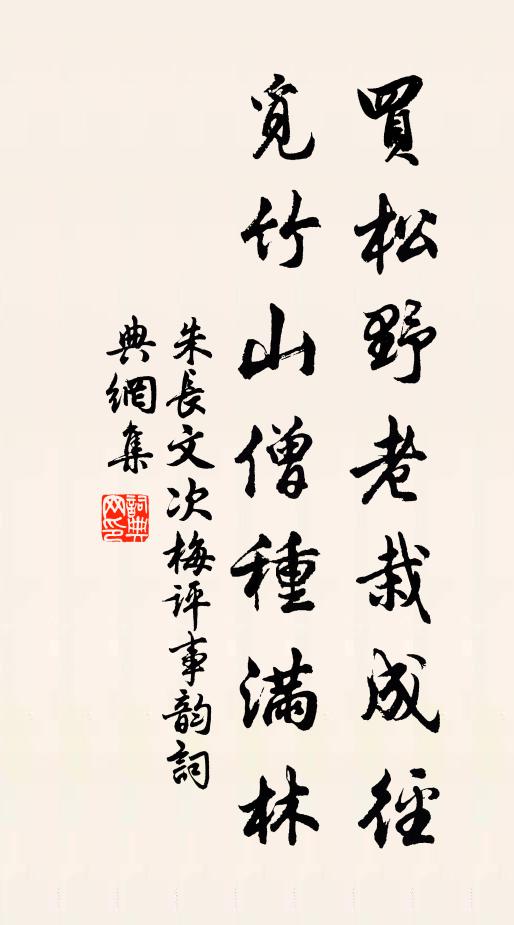 買松野老栽成徑
覓竹山僧種滿林
朱長文次梅評事韵詞
典網集
詞典
网印